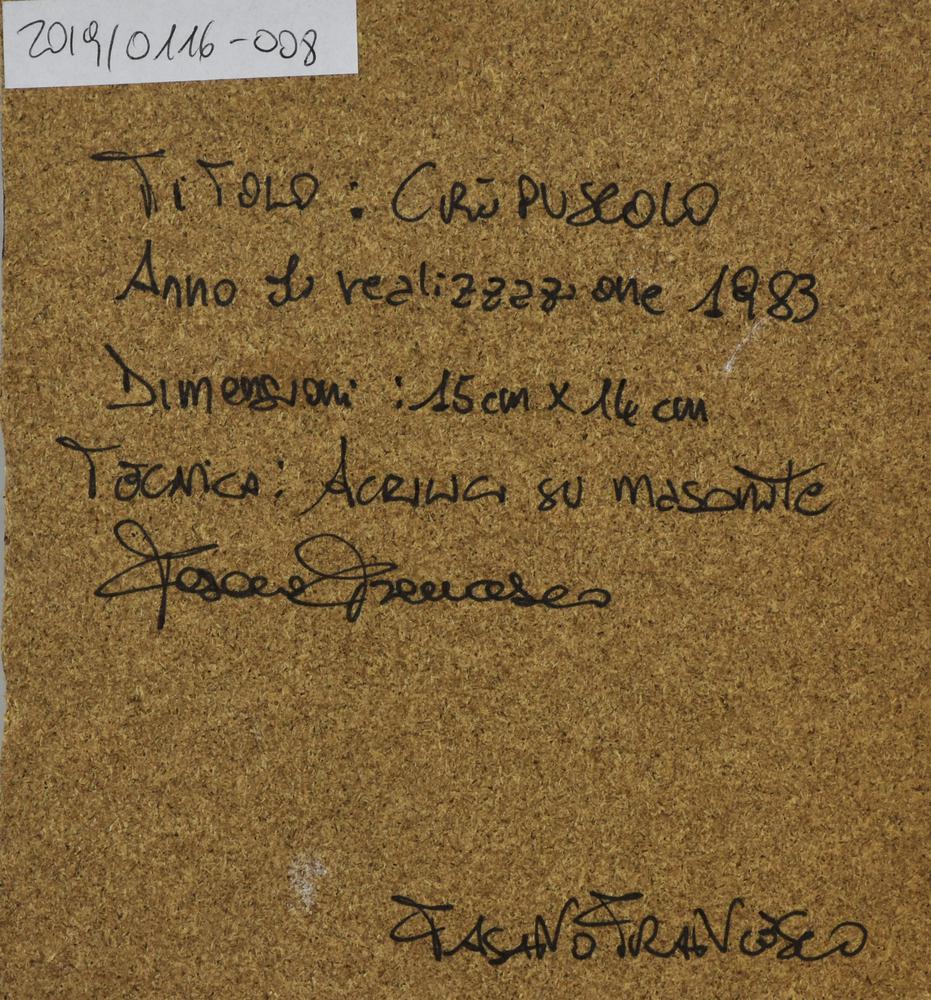 2019/0116-008
TiTOLO: CREPUSCOLO
Anno di realizzazione 1983
Dimensioni: 15cm x 14 cm
TECNICA: ACRILICI su masonite
Fasano Francesco
FASANO FRANCESCO